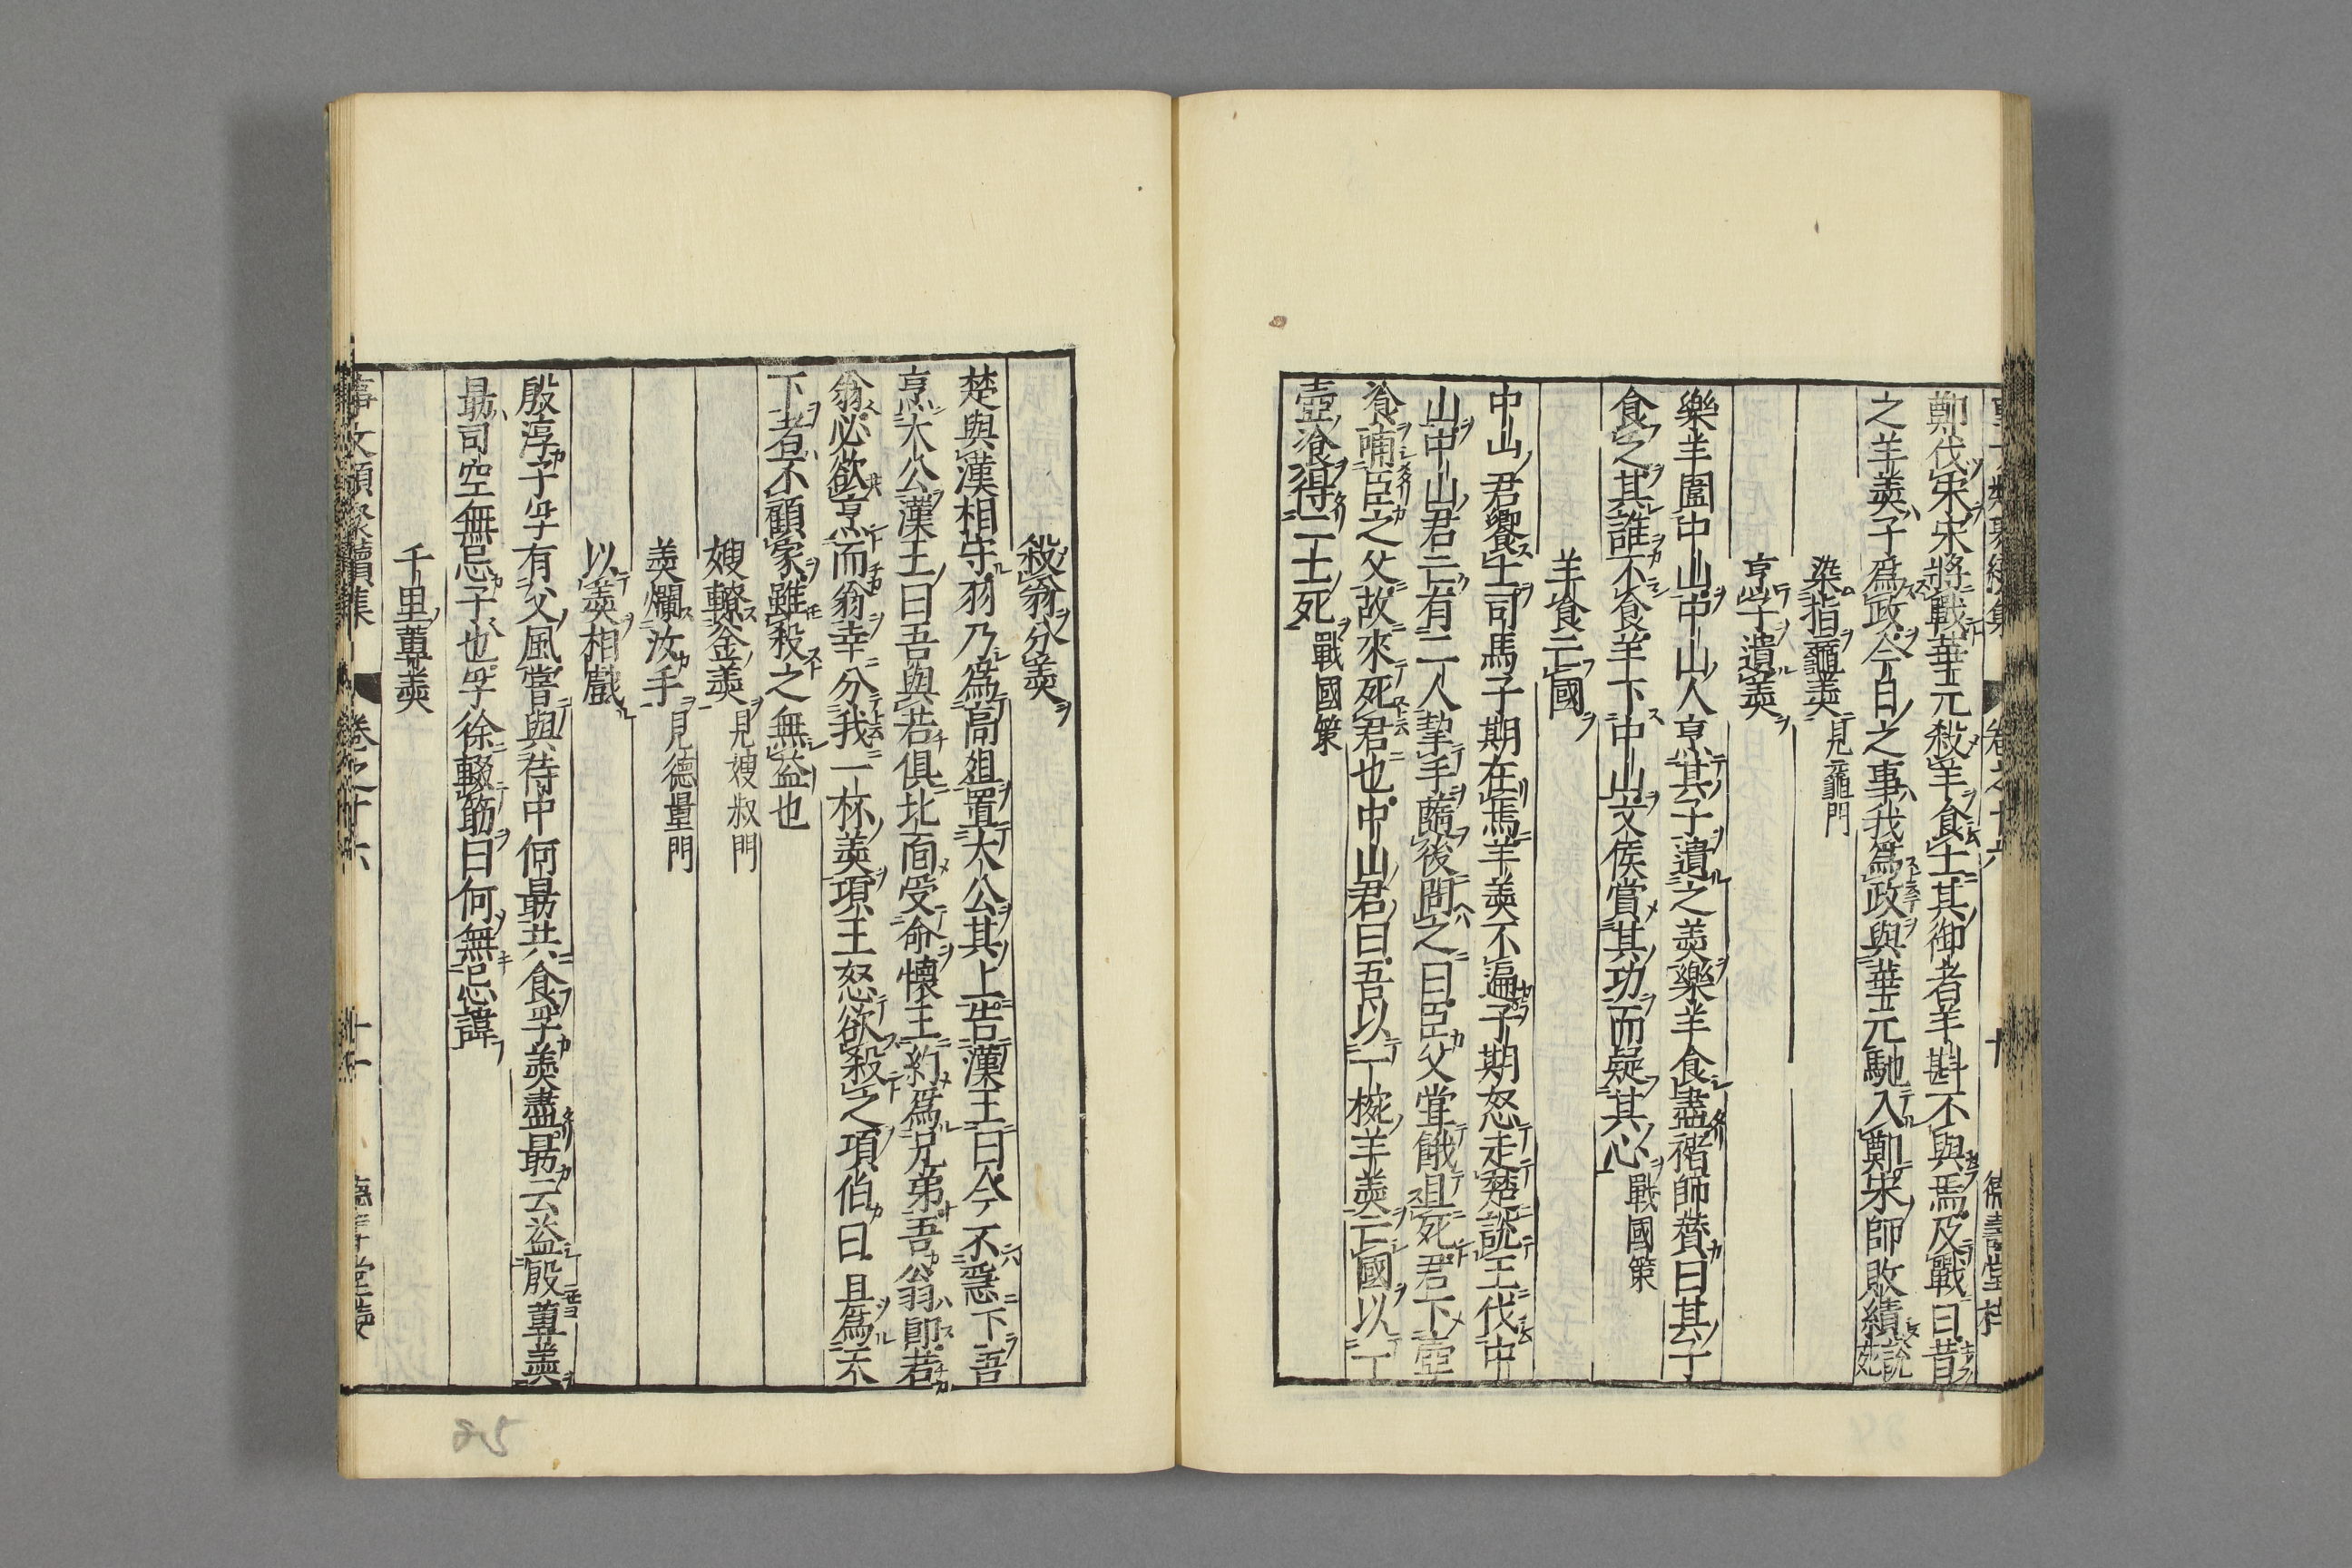 鄭伐宋宋將戰華元殺羊食士其御者羊斟不與焉及戰曰昔
之羊羹子爲政今日之事我爲政與華元馳入鄭宋師敗績說苑
染指黿羹見黿門
亨子遺羹
樂羊圍中山中山人亨其子遺之羹樂羊食盡褚師賛曰其子
食之其誰不食羊下中山文侯賞其功而疑其心戰國策
羊食亡國
中山君饗士司馬子期在焉羊羹不遍子期怒走楚說王伐中
山中山君亡有二人挈手隨後問之曰臣父甞餓且死君下壺
飡哺臣之父故來死君也中山君曰吾以一椀羊羹亡國以一
壺飡得二士死戰國策
殺翁分羹
楚與漢相守羽乃爲高俎置太公其上告漢王曰今不急下吾
烹太公漢王曰吾與若俱北面受命懷王約爲兄弟吾翁即若
翁必欲烹而翁幸分我一杯羹項王怒欲殺之項伯曰且爲天
下者不顧家雖殺之無益也
嫂轑釡羹見嫂叔門
羹爛汝手見德量門
以羹相戲
殷淳子孚有父風甞與侍中何勗共食孚羹盡勗云益殷蓴羹
勗司空無忌子也孚徐輟筯曰何無忌諱
千里蓴羹
事文類聚續集 卷之十六 十一